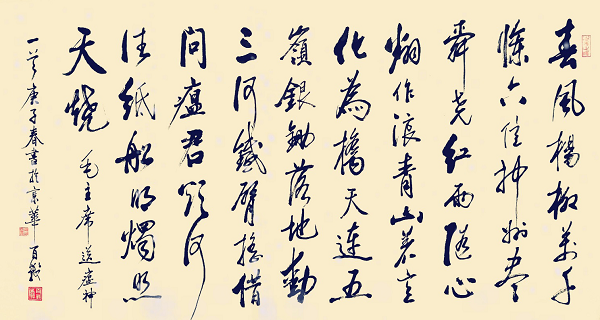 春風楊柳萬千
條六億神州盡
舜堯紅雨隨心
翻作浪青山著意
化為橋天連五
嶺銀鋤落地動
三河鐵臂搖借
問瘟君欲何
往紙船明燭照
天燒 毛主席送瘟神
一首庚子春書於京華